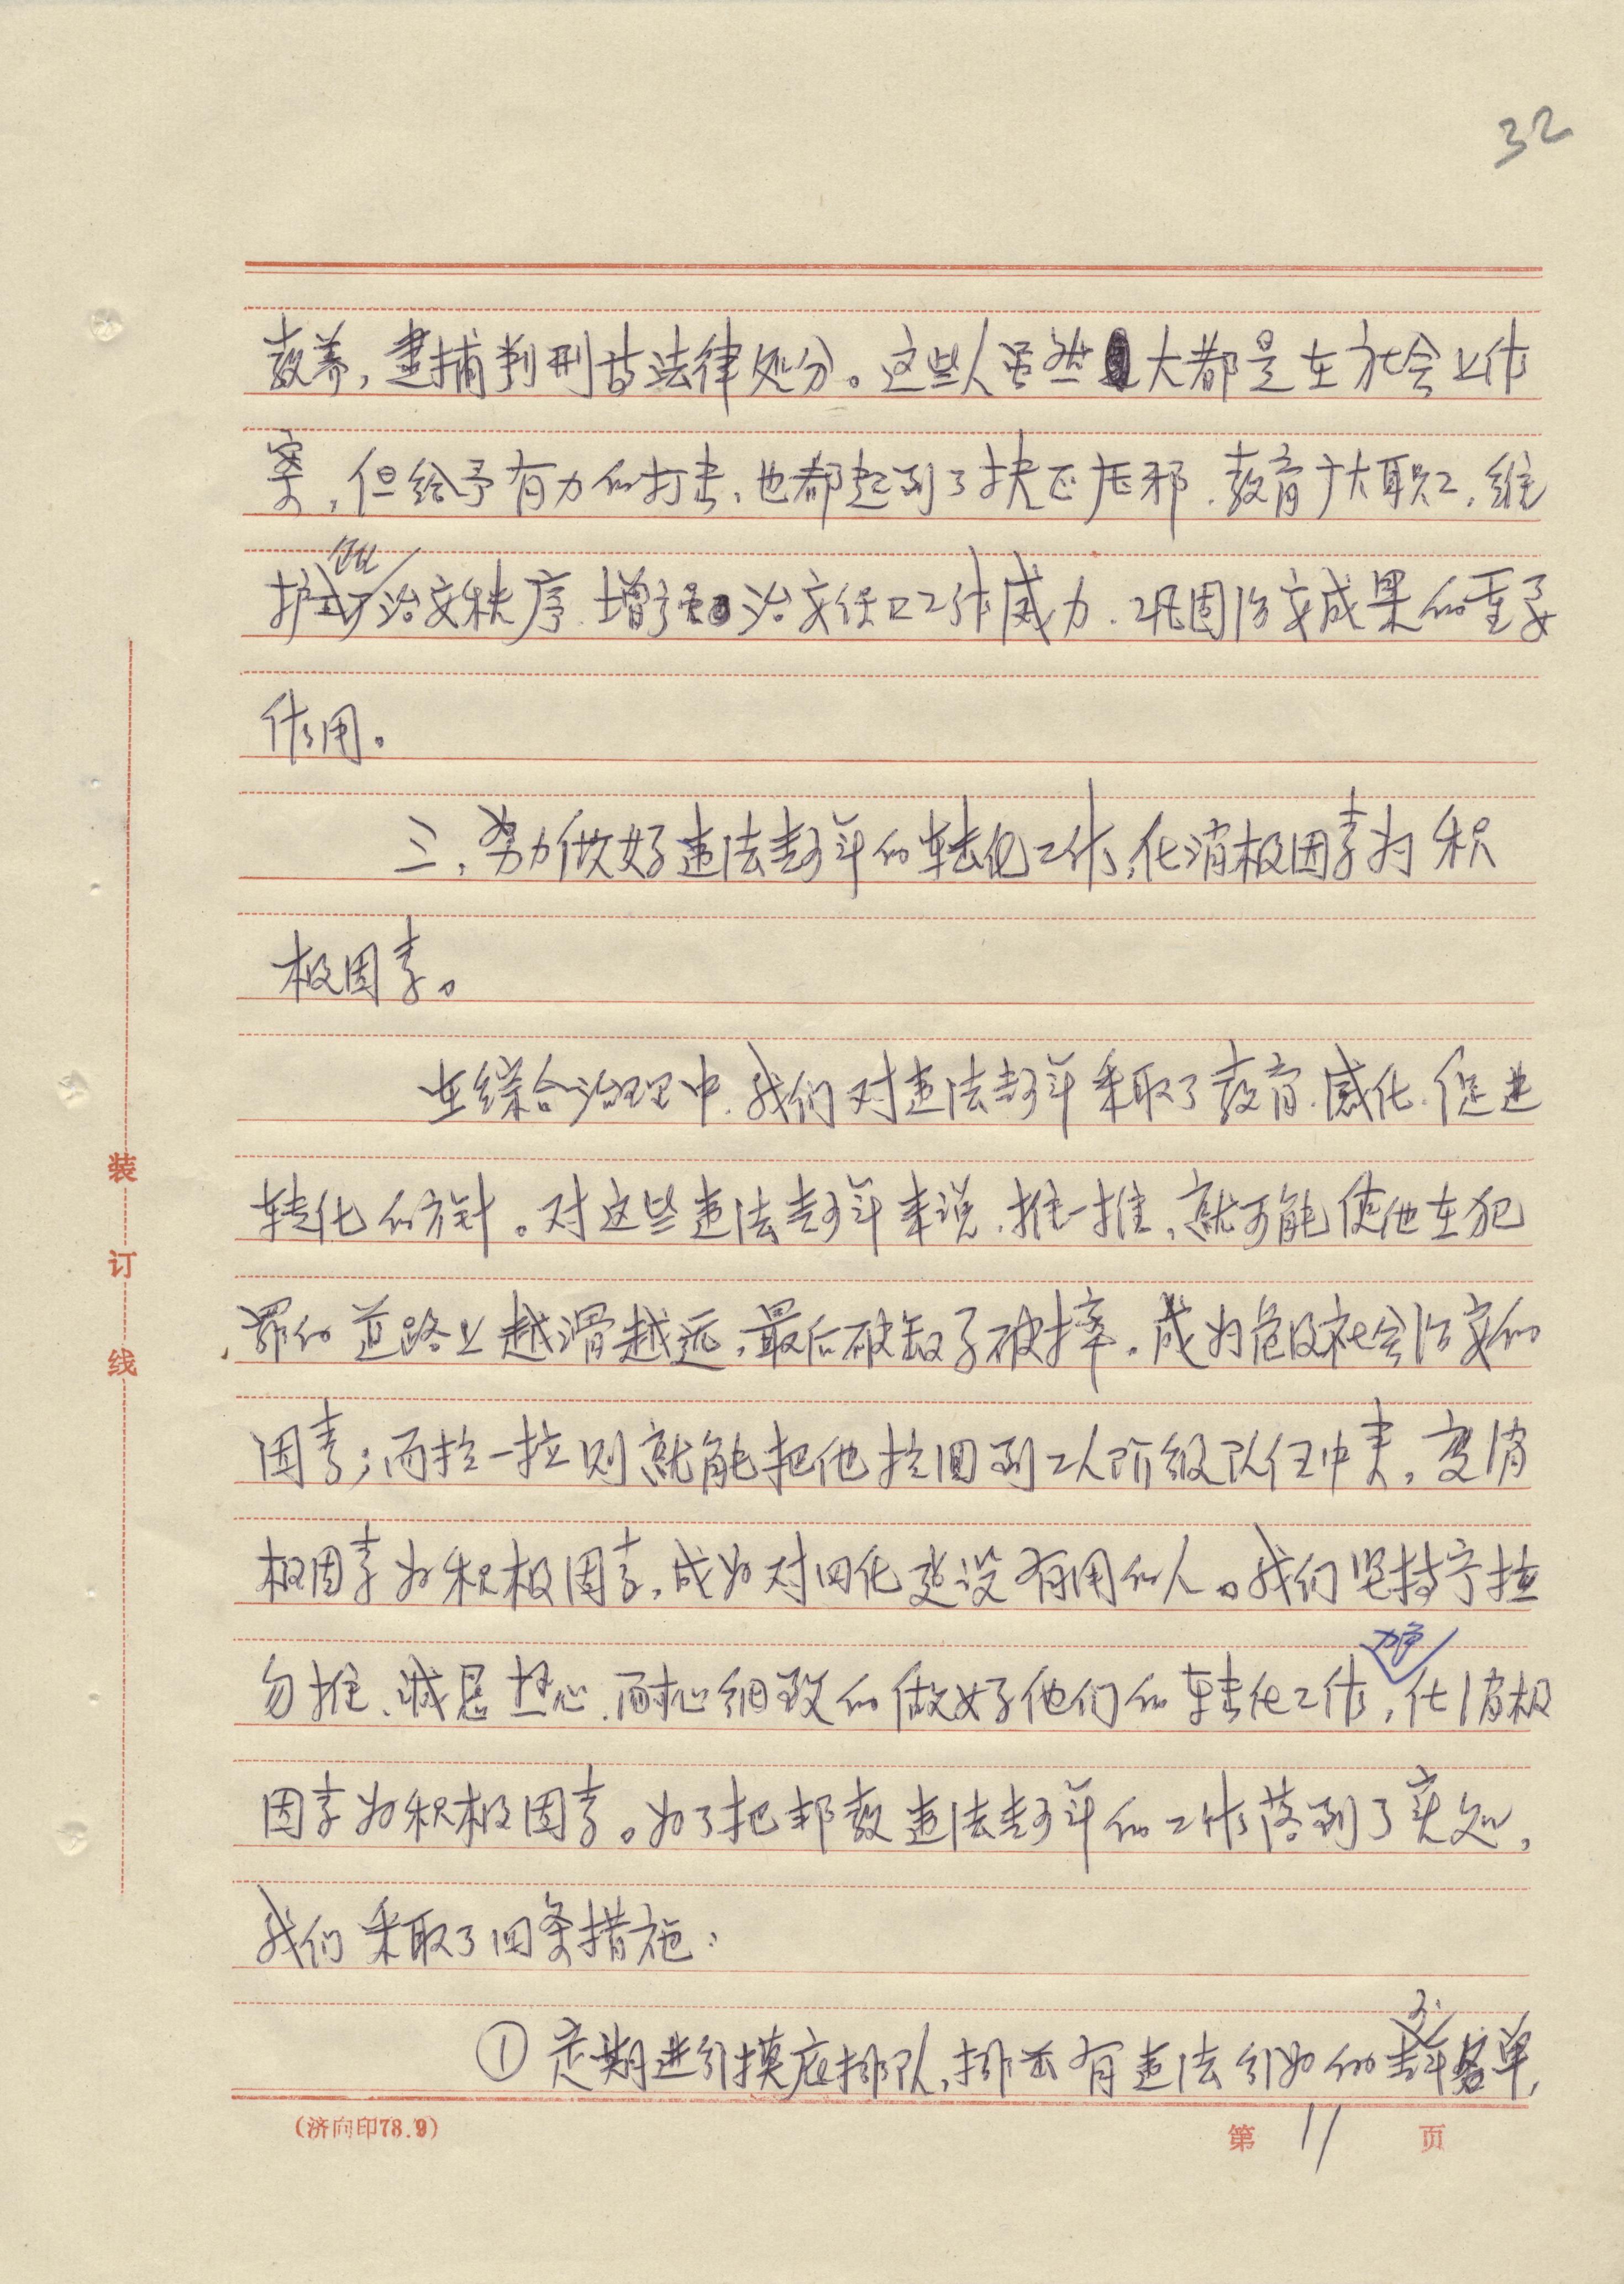 32
教养，逮捕判刑等法律处分。这些人虽然大都是在社会上作
案，但给予有力的打击，也都起到了扶正压邪、教育广大职工，维
护治安秩序、增强治安保卫工作威力、巩固治安成果的重要
作用。
三、努力做好违法青年的转化工作，化消极因素为积
极因素。
在综合治理中，我们对违法青年采取了教育、感化、促进
转化的方针。对这些违法青年来说，推一推，就可能使他在犯
罪的道路上越滑越远，最后破缸子破摔，成为危及社会治安的
因素；而拉一拉则就能把他拉回到工人阶级队伍中来，变消
极因素为积极因素，成为对四化建设有用的人。我们坚持宁拉
勿推、诚恳热心、耐心细致的做好他们的转化工作，力争化消极
因素为积极因素。为了把帮教违法青年的工作落到了实处，
我们采取了四条措施：
①定期进行摸底排队，排出有违法行为的青年名单，
装
订
线
(济向印78.9)
第 11 页